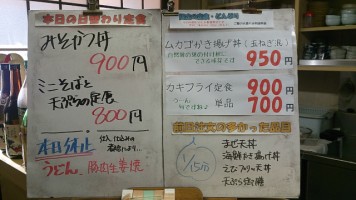 本日の日替わり定食
みそかつ丼
900円
ミニそばと
天ぷらの定食
800円
本日休止
仕入、仕込みの
都合により…
うどん、豚肉生姜焼
ムカゴかき揚げ丼(玉ねぎ、長)
950円
カキフライ定食 900円
単品 700円
前回注文の多かった品目
1/15の
まぜ天丼
海鮮かき揚げ丼
えびフライ天丼
天ぷら御膳